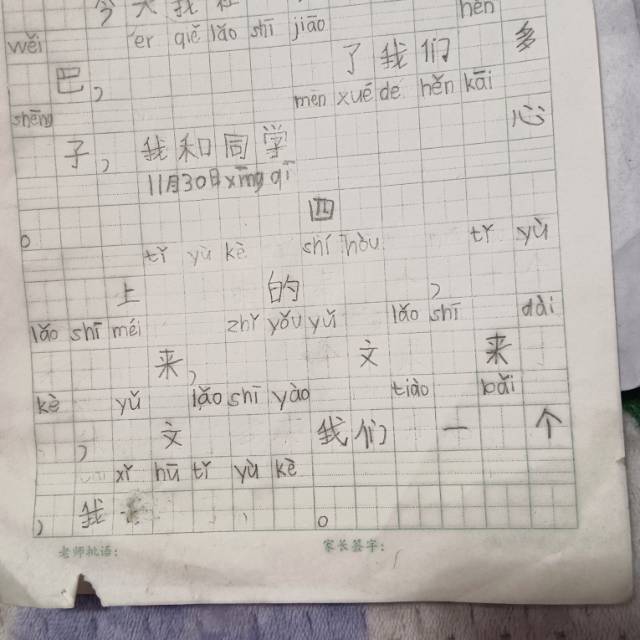 今天我在
hěn
wěi ér qiě lǎo shī jiāo
巴， 了我们 多
shēng mēn xué dé hěn kāi
子，我和同学 心
11月30日xīng qī
四
。 tǐ yù kè shí hòu tǐ yù
上 的 ，
lǎo shī méi zhǐ yǒu yǔ lǎo shī dài
来， 文 来
kè yǔ lǎo shī yào tiào bǎi
， 文 我们 一 个
xǐ hū tǐ yù kè
，我 。
老师批语： 家长签字：